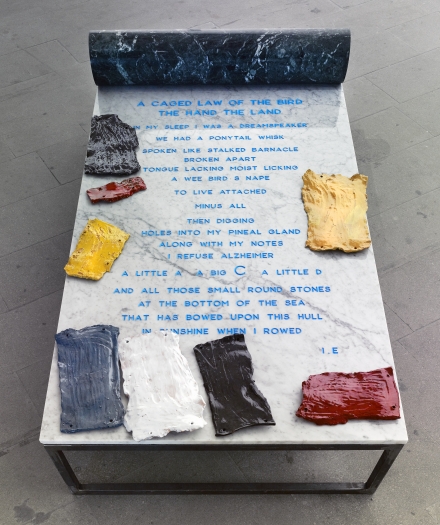 A CAGED LAW OF THE BIRD
THE HAND THE LAND
MY SLEEP I WAS A DREAMSPEAKER
WE HAD A PONYTAIL WHISK
SPOKEN LIKE STALKED BARNACLE
BROKEN APART
TONGUE LACKING MOIST LICKING
A WEE BIRD S NAPE
TO LIVE ATTACHED
MINUS ALL
THEN DIGGING
HOLES INTO MY PINEAL GLAND
ALONG WITH MY NOTES
I REFUSE ALZHEIMER
A LITTLE A A BIG C A LITTLE D
AND ALL THOSE SMALL ROUND STONES
AT THE BOTTOM OF THE SEA
THAT HAS BOWED UPON THIS HULL
IN SUNSHINE WHEN I ROWED
I.E